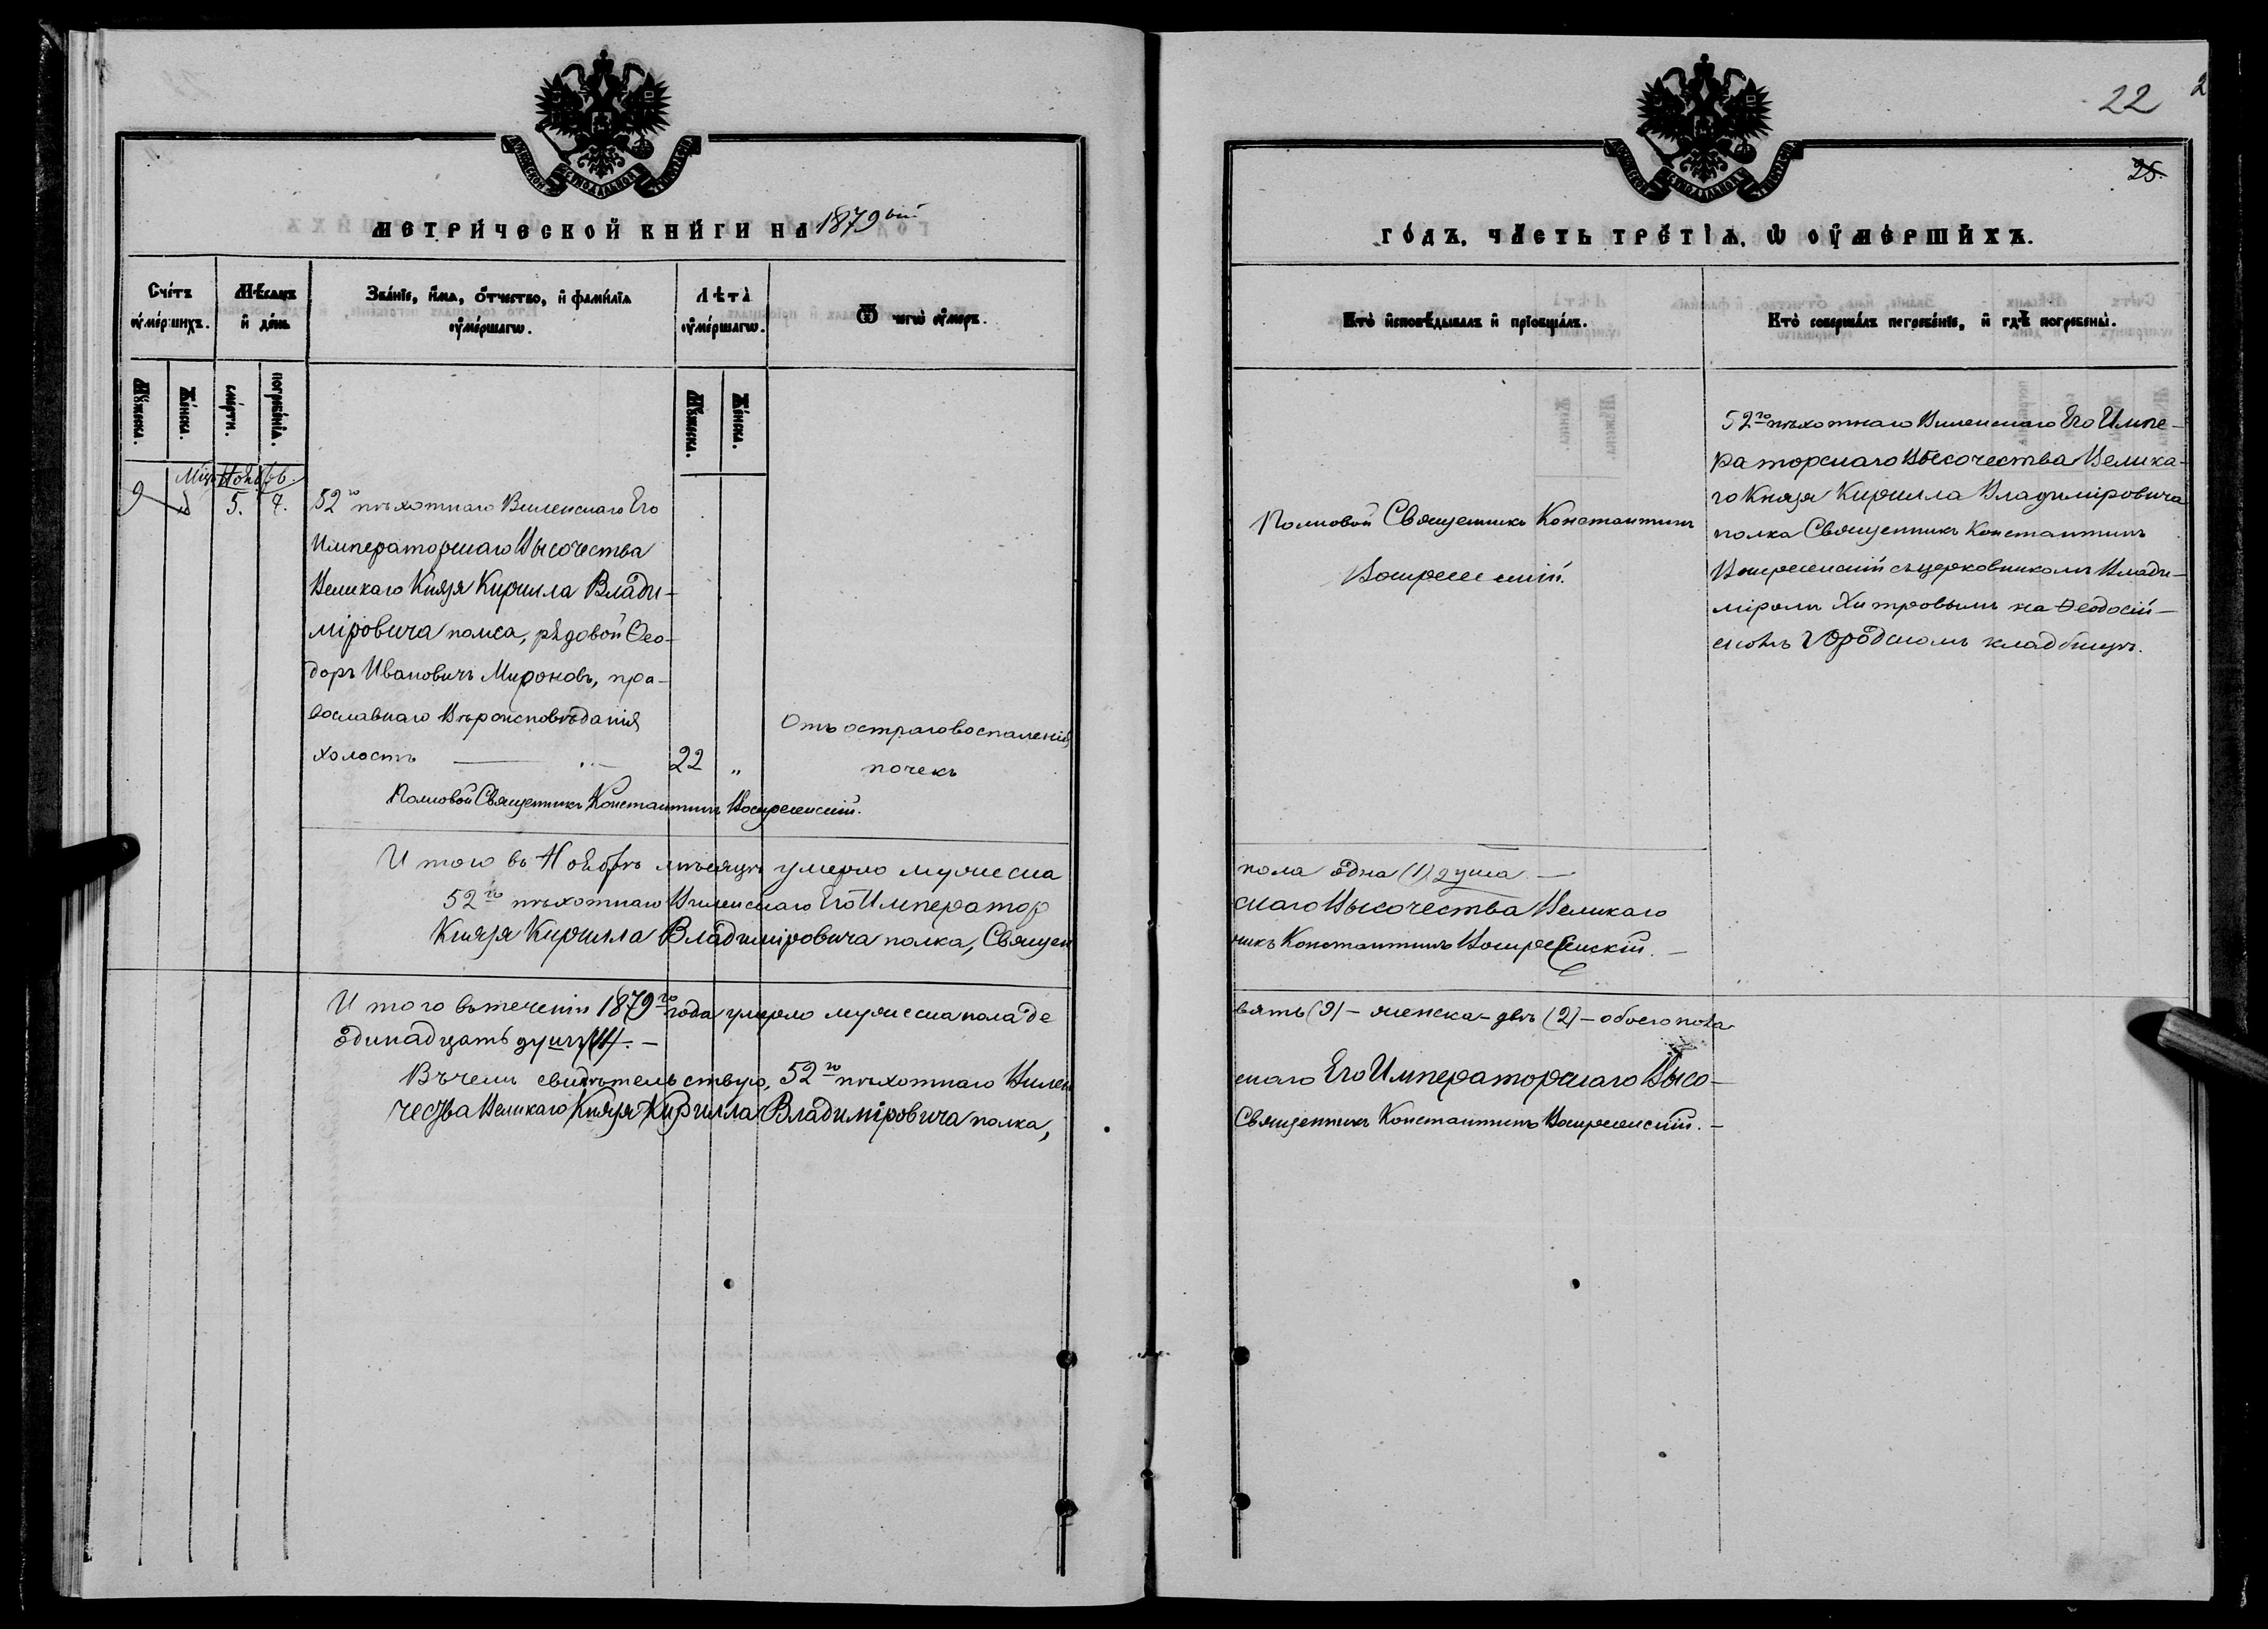 22
25.
МЕТРИ́ЧЕСКОЙ КНИ́ГИ НА 1879ый
ГО́ДЪ, ЧА́СТЬ ТРЕ́ТІѦ, Ѡ ОУ҆МЕ́РШИХЪ.
Сче́тъ оу҆ме́ршихъ.
Мѣ́сѧцъ и҆ де́нь
Зва́нїе, и҆́мѧ, ѻ҆́тчество, и҆ фами́лїѧ оу҆ме́ршагѡ.
Лѣ́та оу҆ме́ршагѡ.
Ѿ чегѡ̀ оу҆́меръ.
Кто̀ и҆сповѣ́дывалъ и҆ прїѡбща́лъ.
Кто̀ соверша́лъ погребе́нїе, и҆ гдѣ̀ погребены̀.
Мꙋ́жеска.
Же́нска.
сме́рти.
погребе́нїѧ.
Мꙋ́жеска.
Же́нска.
Мцъ Ноябрь.
9 5. 7. 52го пѣхотнаго Виленскаго Его
Императорскаго Высочества
Великаго Князя Кирилла Влади-
міровича полка, рядовой Ѳео-
доръ Ивановичъ Мироновъ, пра-
вославнаго Вѣроисповѣданія
холостъ 22 „
Отъ остраго воспаленія
почекъ
Полковой Священникъ Константинъ Воскресенскій.
Полковой Священникъ Константинъ
Воскресенскій.
52го пѣхотнаго Виленскаго Его Импе-
раторскаго Высочества Велика-
го Князя Кирилла Владиміровича
полка Священникъ Константинъ
Воскресенскій съ церковникомъ Влади-
міромъ Хитровымъ на Ѳеодосій-
скомъ городскомъ кладбищѣ.
Итого въ Ноябрѣ мѣсяцѣ умерло мужеска пола одна (1) душа. —
52го пѣхотнаго Виленскаго Его Императорскаго Высочества Великаго
Князя Кирилла Владиміровича полка, Священникъ Константинъ Воскресенскій. —
Итого въ теченіи 1879го года умерло мужеска пола девять (9) – женска – двѣ (2) – обоего пола
одинадцать душъ (11). —
Въ чемъ свидѣтельствую, 52го пѣхотнаго Виленскаго Его Императорскаго Высо-
чества Великаго Князя Кирилла Владиміровича полка, Священникъ Константинъ Воскресенскій. —